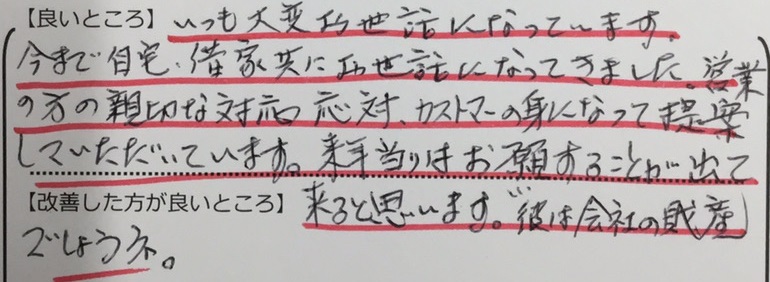 【良いところ】いつも大変お世話になっています。
今まで自宅、借家共にお世話になってきました。営業
の方の親切な対応 応対、カストマーの身になって提案
していただいています。来年当りはお願することが出て
【改善した方が良いところ】来ると思います。"彼は会社の財産"
でしょうネ。